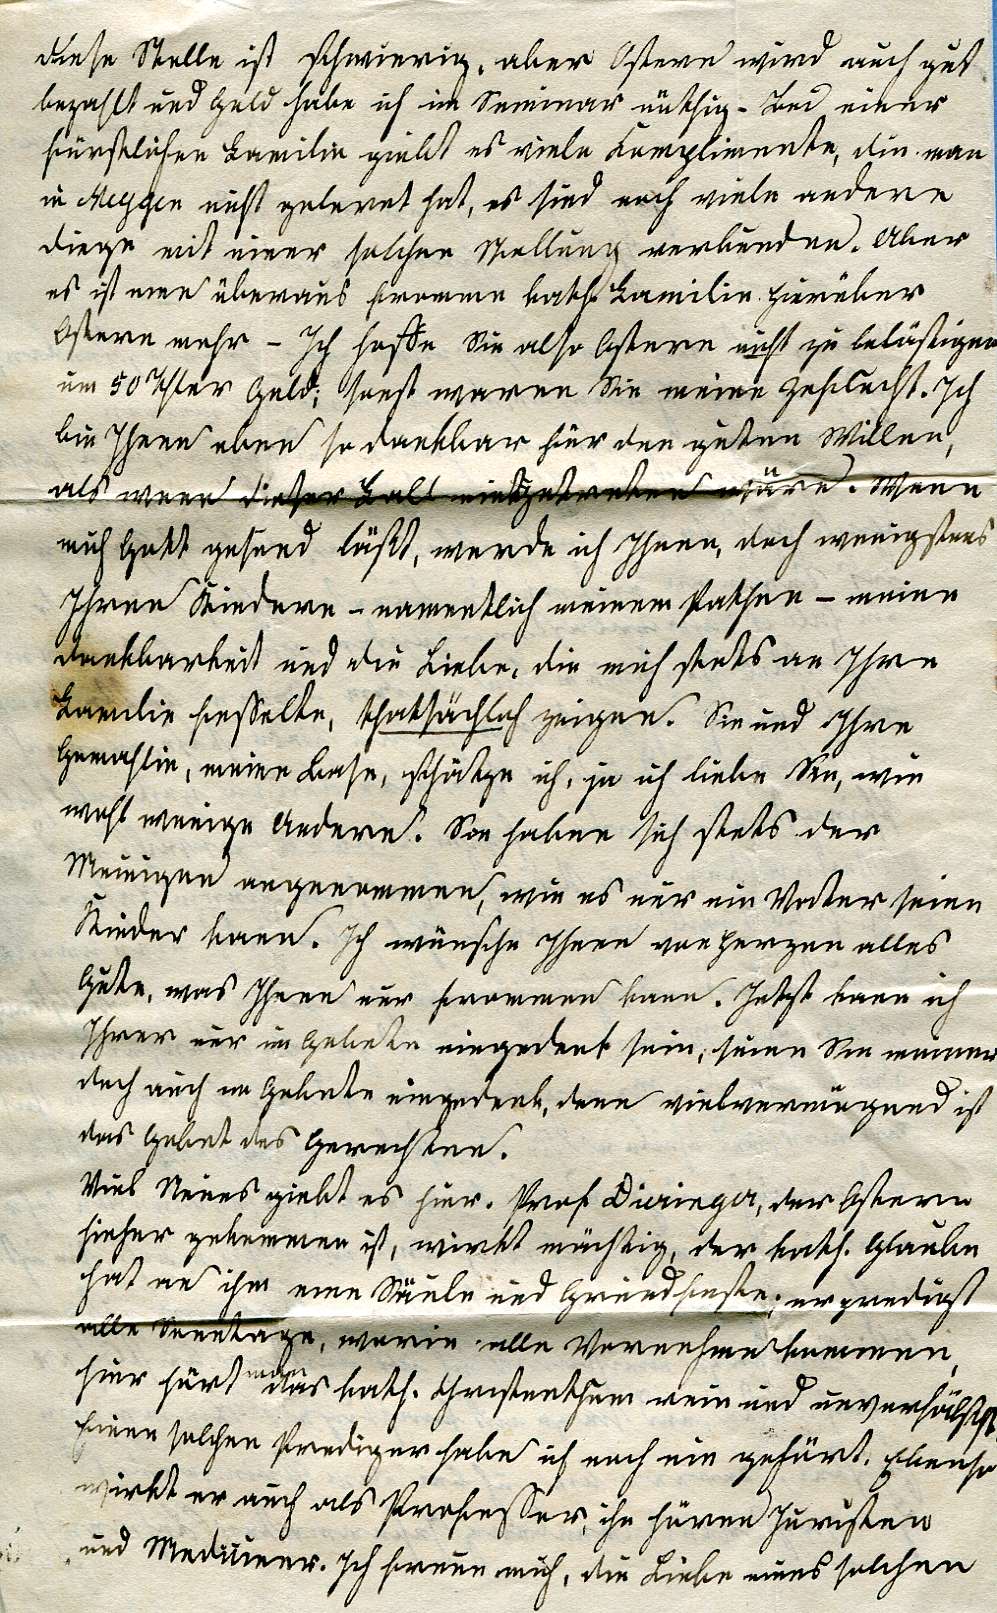 diese Stelle ist schwierig, aber Ostern wird auch gut
bezahlt und Geld habe ich im Seminar nöthig - Bei einer
fürstlichen Familie giebt es viele Complimente, die man
in Meggen nicht gelernt hat, es sind noch viele andere
Dinge mit einer solchen Stellung verbunden. Aber
es ist eine überaus fromme kath. Familie. Hierüber
Ostern mehr - Ich hoffe Sie also Ostern nicht zu belästigen
um 50 Thler Geld; sonst waren Sie meine Zuflucht. Ich
bin Ihnen eben so dankbar für den guten Willen,
als wenn dieser Fall eingetreten wäre. Wenn
mich Gott gesund läßt, werde ich Ihnen, doch wenigstens
Ihren Kindern - namentlich meinem Pathen - meine
Dankbarkeit und die Liebe, die mich stets an Ihre
Familie fesselte, thatsächlich zeigen. Sie und Ihre
Gemahlin, meine Base, schätze ich, ja ich liebe Sie, wie
wohl wenige Andere. Sie haben sich stets der
Meinigen angenommen, wie es nur ein Vater seine
Kinder kann. Ich wünsche Ihnen von Herzen alles
Gute, was Ihnen nur frommen kann. Jetzt kann ich
Ihrer nur im Gebete eingedenk sein, seien Sie meiner
doch auch im Gebete eingedenk, denn vielvermögend ist
das Gebet des Gerechten.
Viel Neues giebt es hier. Prof Dieringer, der Ostern
hieher gekommen ist, wirkt mächtig, der kath. Glaube
hat an ihm eine Säule und Grundfeste; er predigt
alle Sonntage, worin alle Vornehme kommen,
hier hört man das kath. Christenthum rein und unverfälscht,
Einen solchen Prediger habe ich noch nie gehört. Ebenso
wirkt er auch als Professor, ihn hören Juristen
und Mediciner. Ich freue mich, die Liebe eines solchen